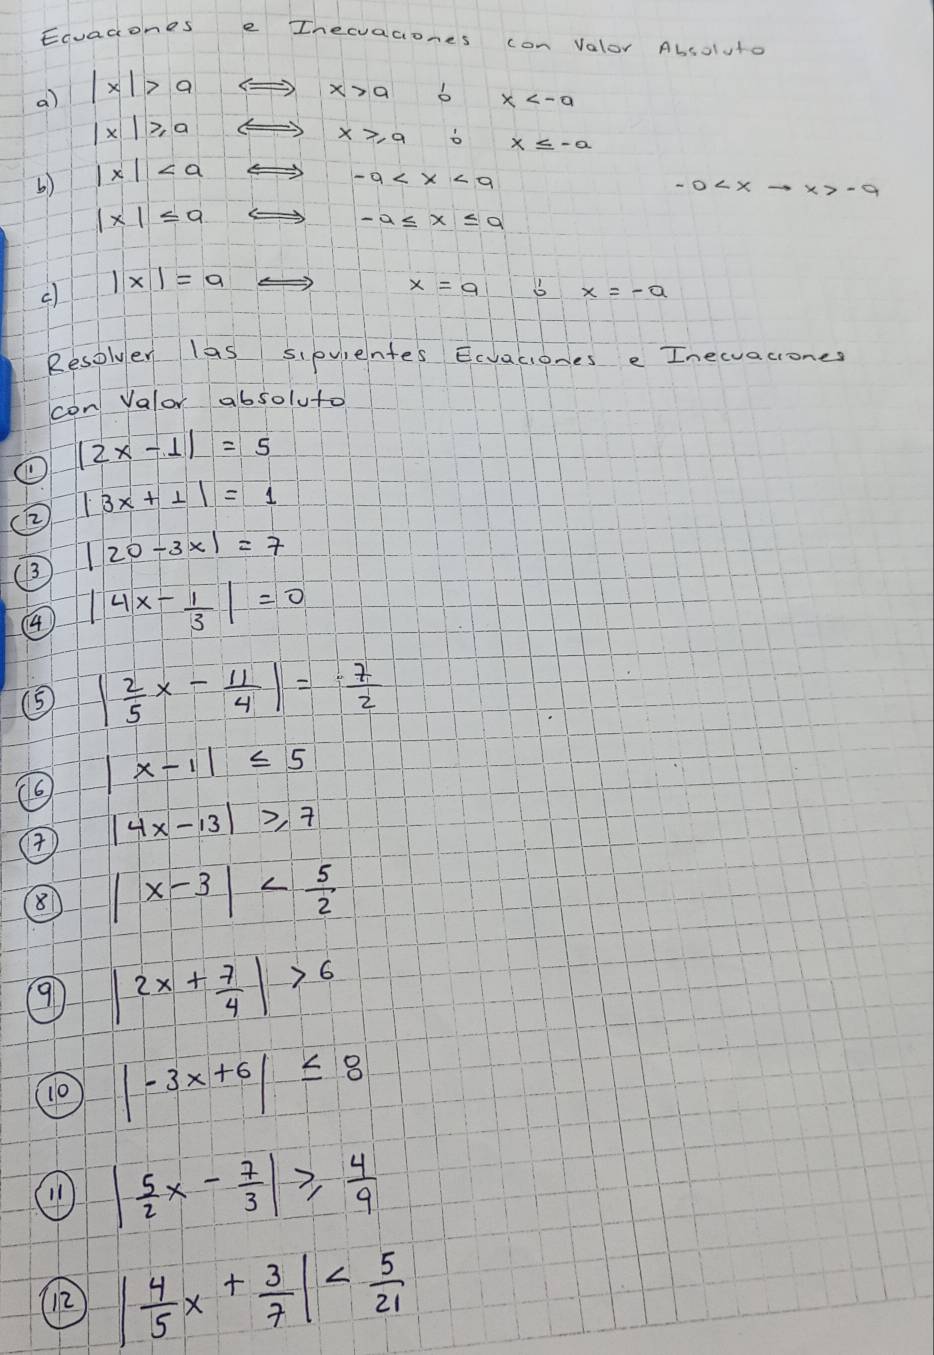 Ecuaciones e Inecuaciones con Valor Absoluto
a) |x| > a ⟺ x > a ó x < -a
|x| ≥ a ⟺ x ≥ a ó x ≤ -a
b) |x| < a ⟺ -a < x < a -a < x → x > -a
|x| ≤ a ⟺ -a ≤ x ≤ a
c) |x| = a ⟺ x = a ó x = -a
Resolver las siguientes Ecuaciones e Inecuaciones
con Valor absoluto
① |2x - 1| = 5
② |3x + 1| = 1
③ |20 - 3x| = 7
④ |4x - 1/3| = 0
⑤ |2/5 x - 11/4| = 7/2
⑥ |x - 1| ≤ 5
⑦ |4x - 13| ≥ 7
⑧ |x - 3| < 5/2
⑨ |2x + 7/4| > 6
⑩ |-3x + 6| ≤ 8
⑪ |5/2 x - 7/3| ≥ 4/9
⑫ |4/5 x + 3/7| < 5/21